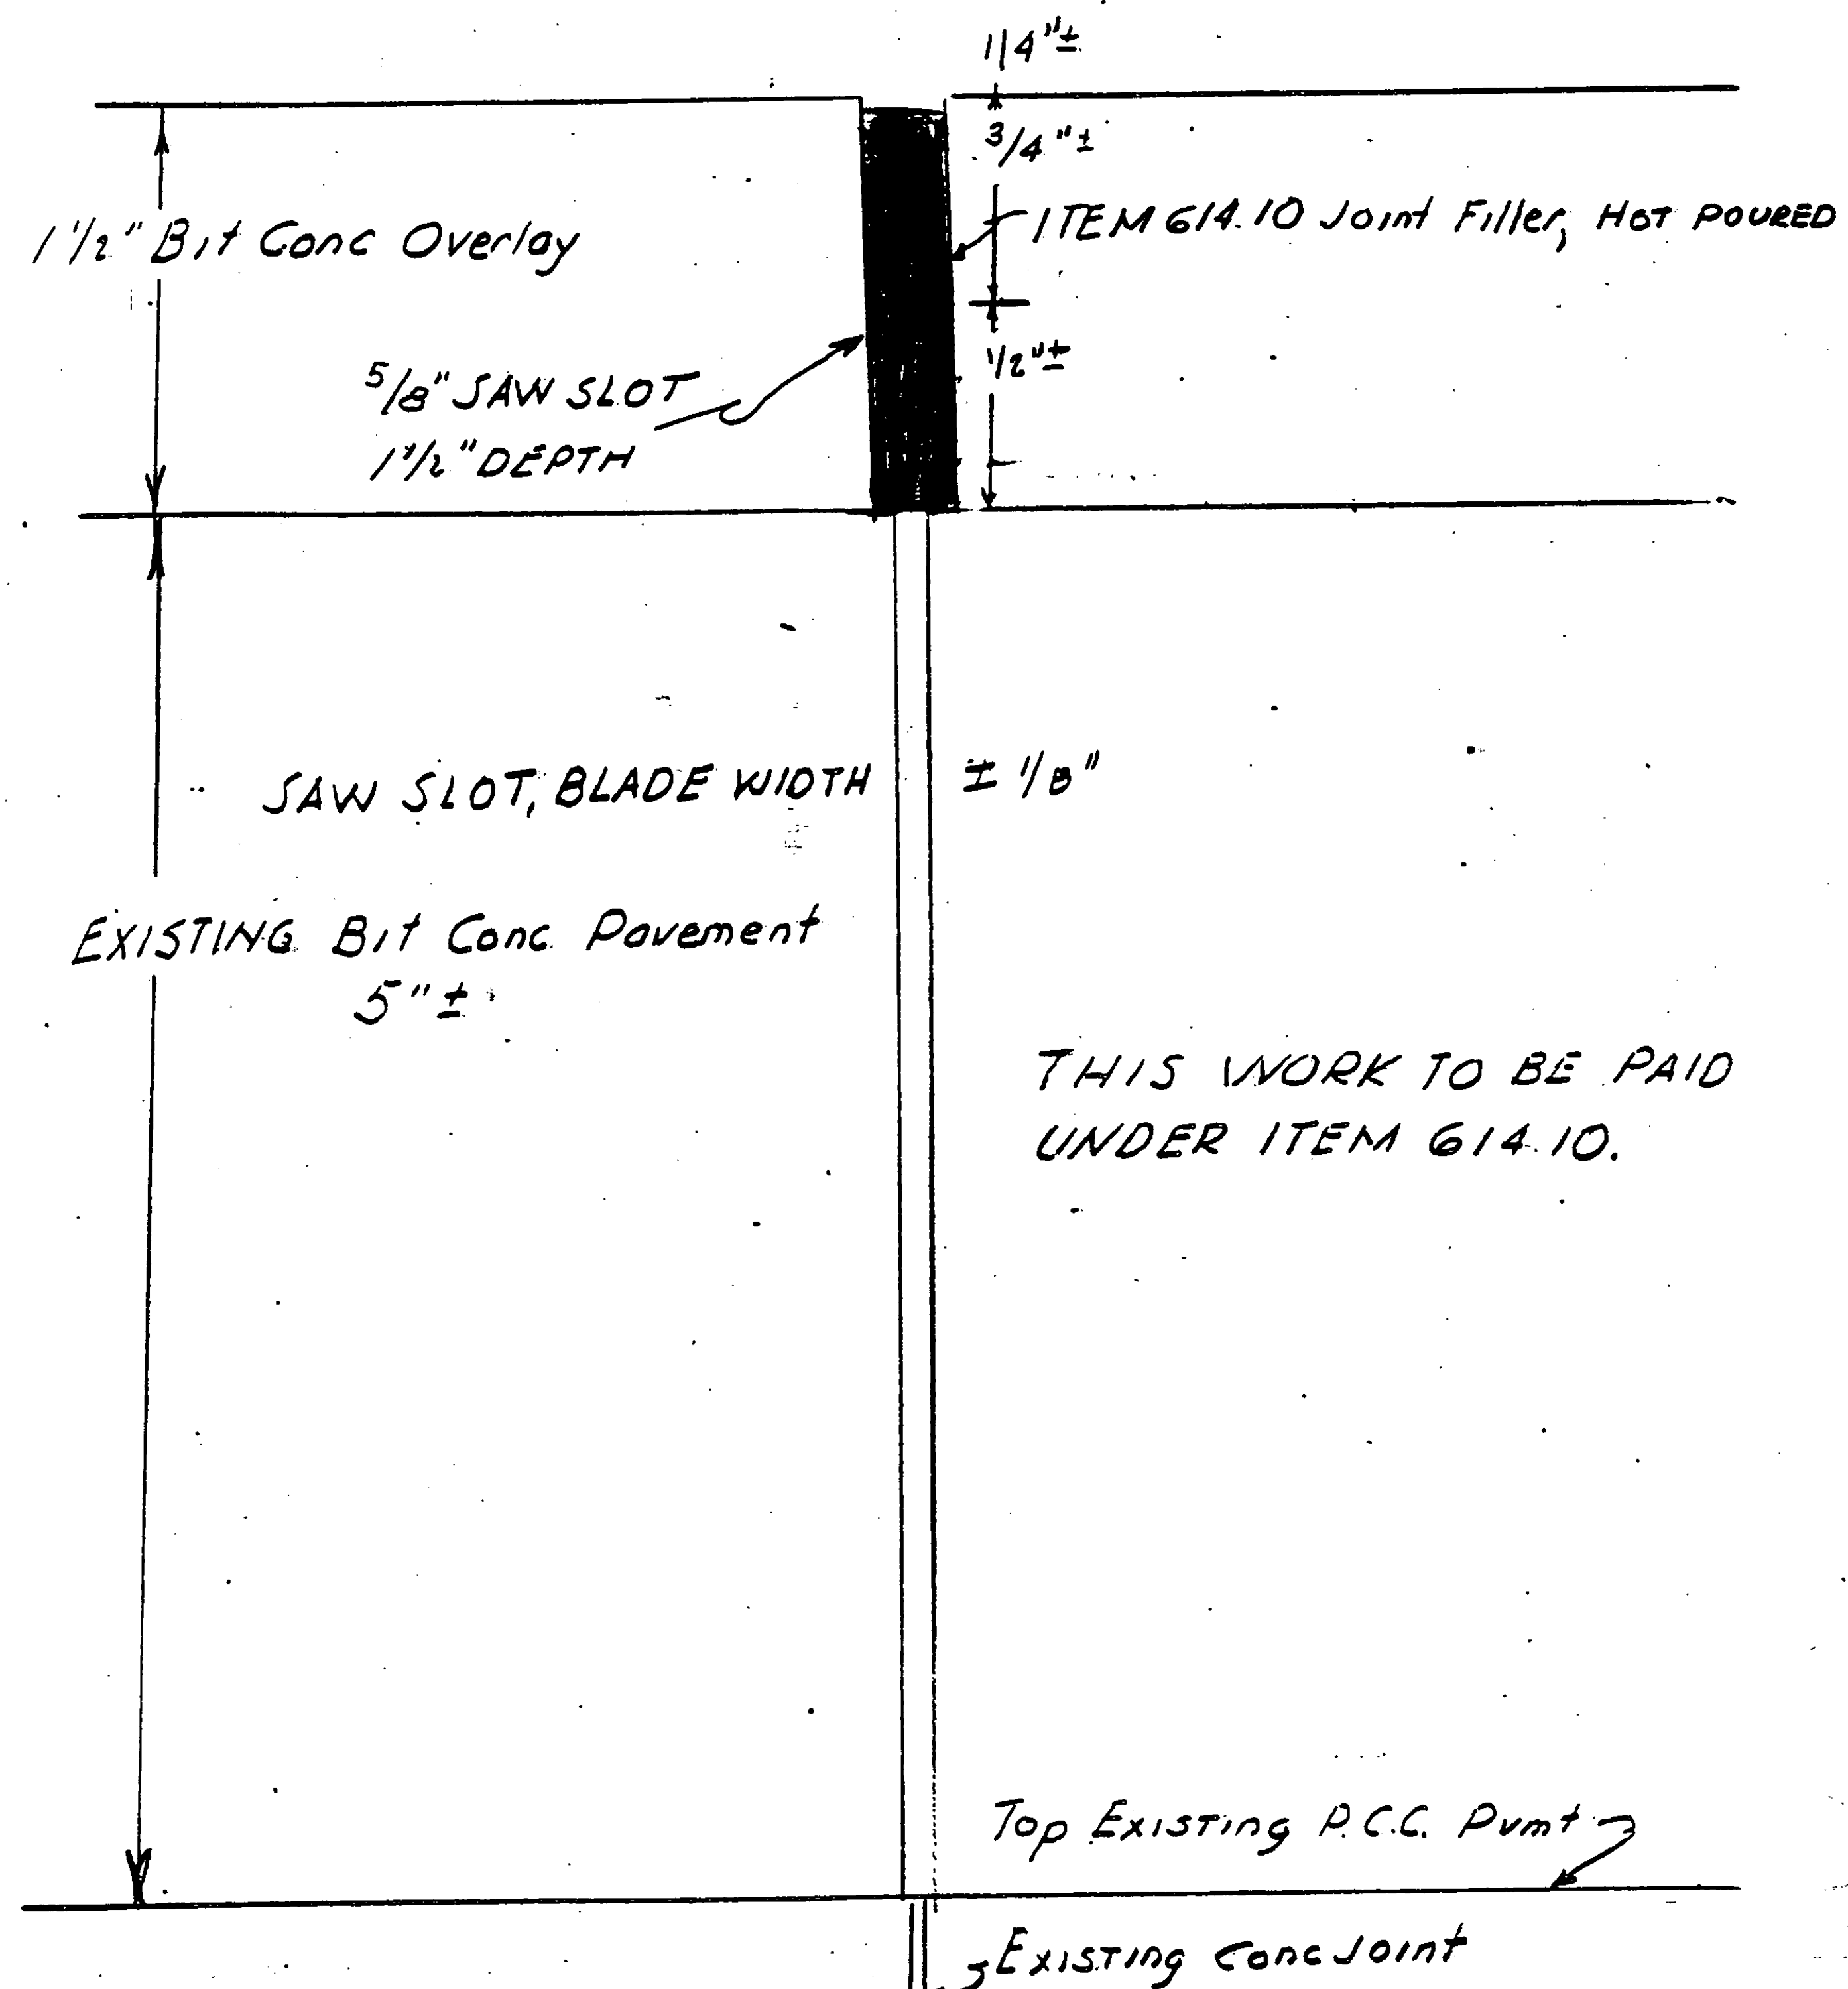 1/4"±
3/4"±
1 1/2" Bit Conc Overlay
ITEM 614.10 Joint Filler, HOT POURED
1/2"±
5/8" SAW SLOT
1 1/2" DEPTH
SAW SLOT, BLADE WIDTH ± 1/8"
EXISTING Bit Conc. Pavement
5"±
THIS WORK TO BE PAID
UNDER ITEM 614.10.
Top Existing P.C.C. Pvmt
Existing Conc Joint